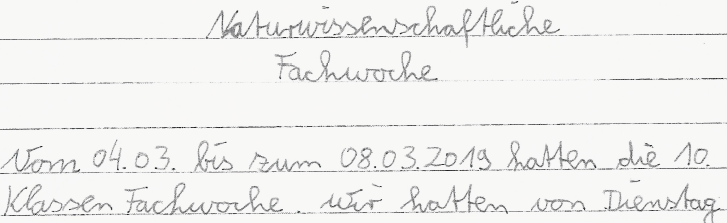 Naturwissenschaftliche
Fachwoche
Vom 04.03. bis zum 08.03.2019 hatten die 10.
Klassen Fachwoche. Wir hatten von Dienstag